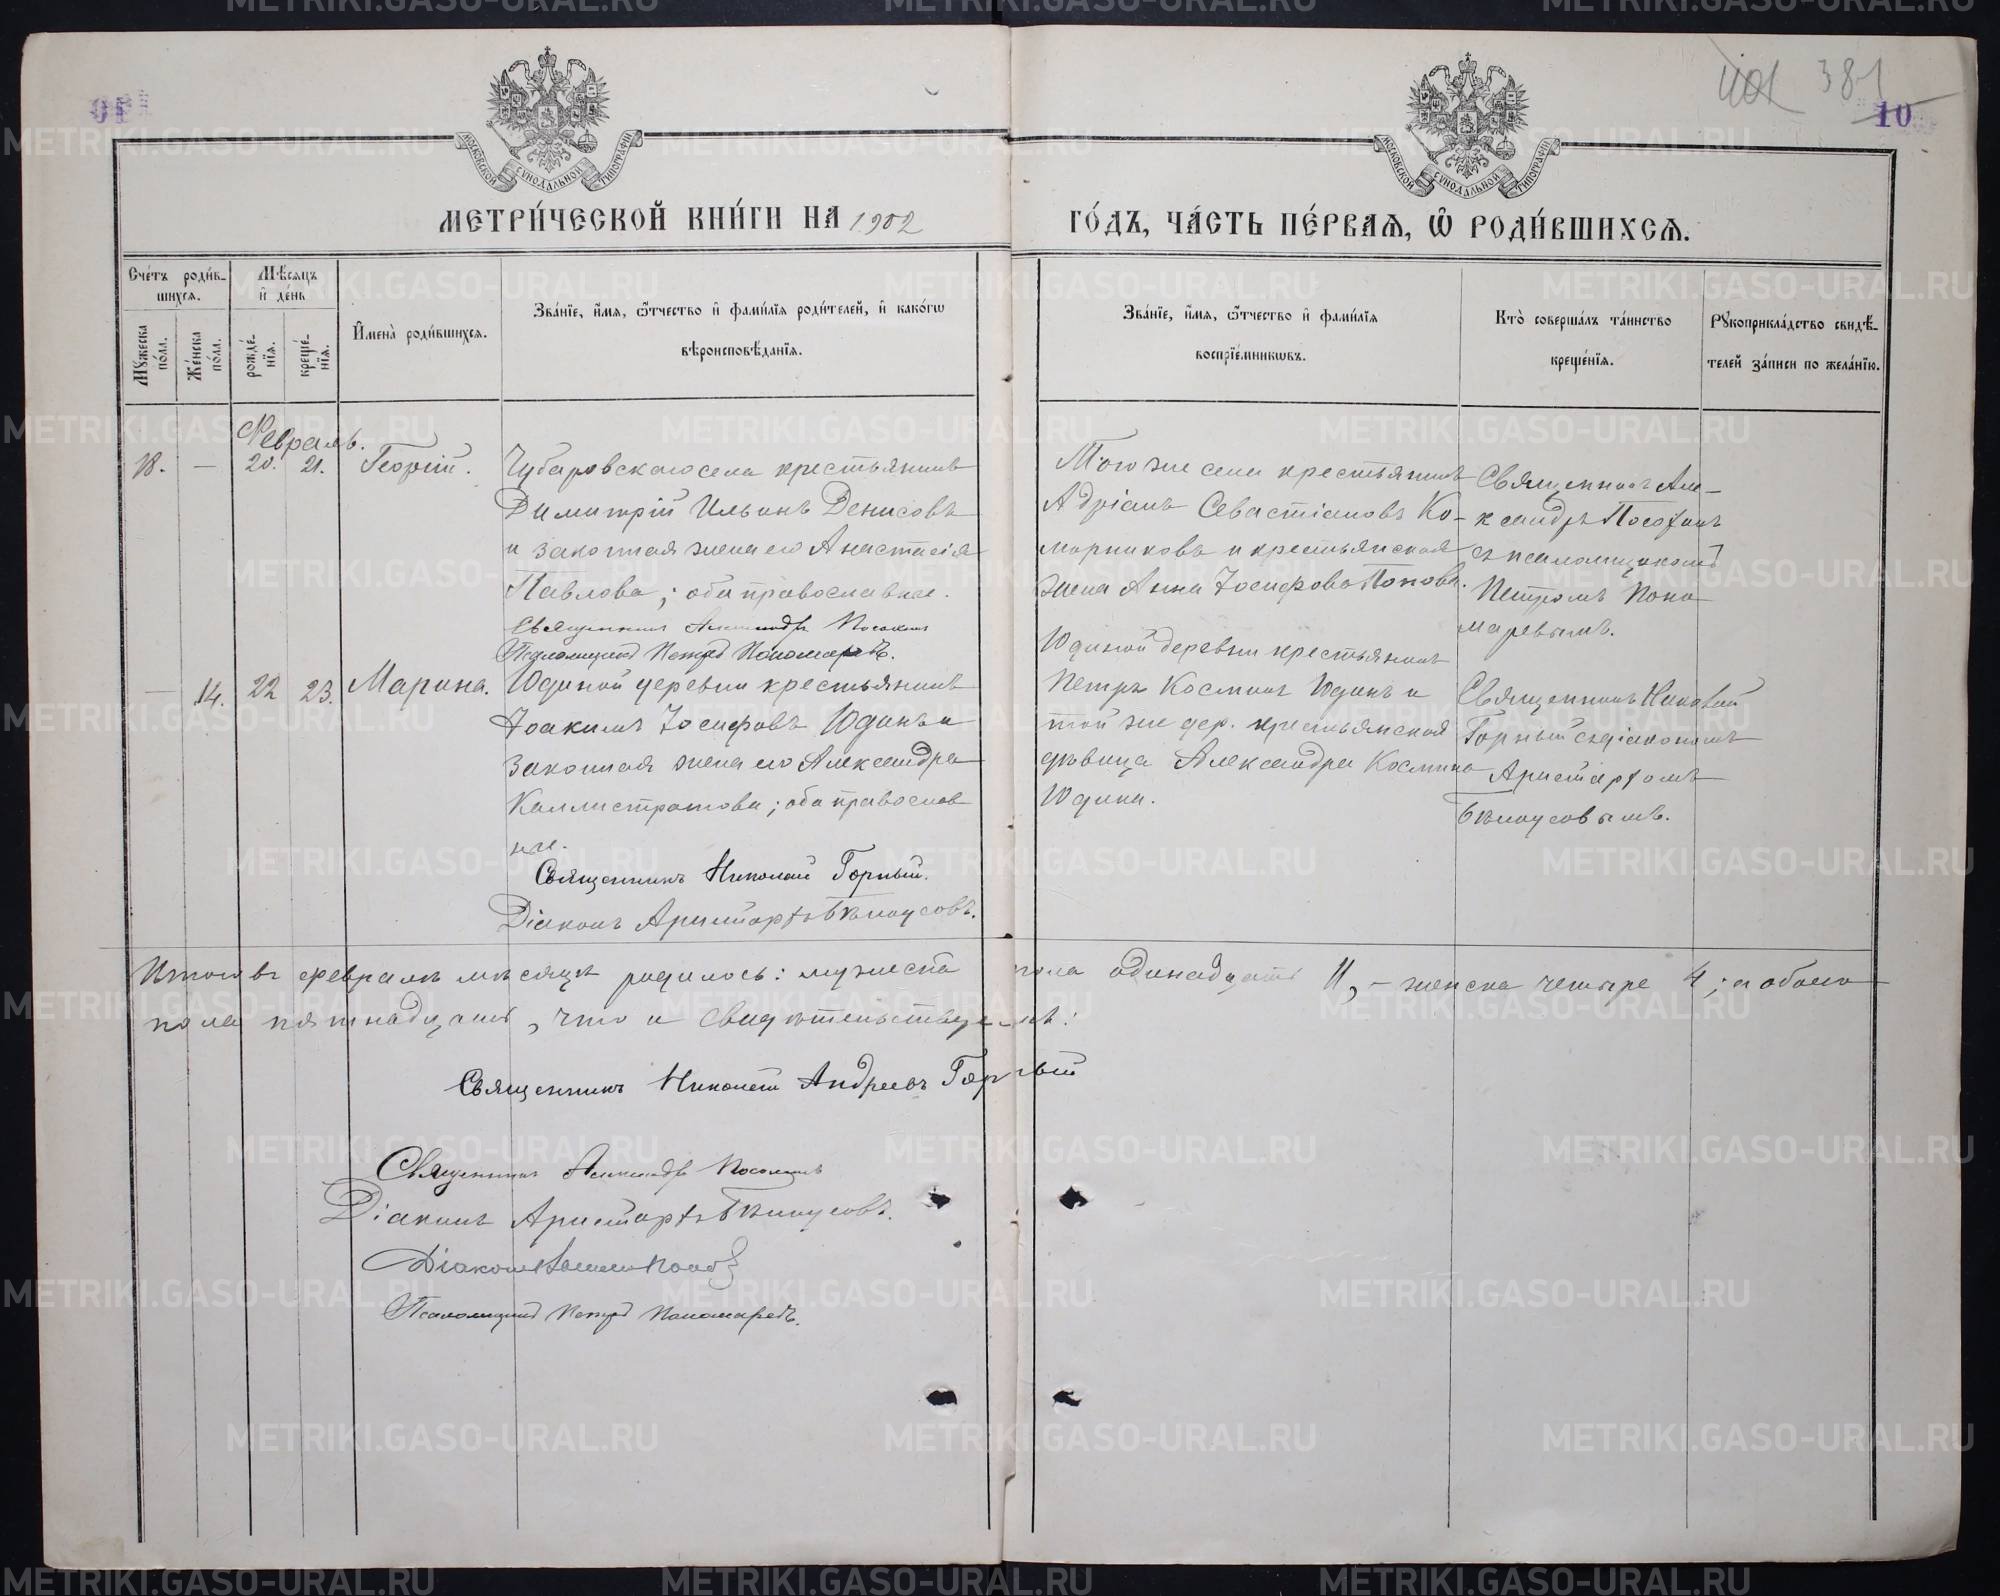 МЕТРИ́ЧЕСКОЙ КНИ́ГИ НА 1902 ГО́ДЪ, ЧА́СТЬ ПЕ́РВАѦ, Ѡ҆ РОДИ́ВШИХСѦ.
381
10
МОСКОВСКОЙ СУНОДАЛЬНОЙ ТИПОГРАФІИ
МОСКОВСКОЙ СУНОДАЛЬНОЙ ТИПОГРАФІИ
Сче́тъ роди́в-
шихсѧ.
Мѣ́сѧцъ
и҆ де́нь
Мꙋжеска по́ла.
Же́нска по́ла.
рожде́-
нїѧ.
креще́-
нїѧ.
И҆мена̀ роди́вшихсѧ.
Зва́нїе, и҆́мѧ, ѻ҆́тчество и҆ фами́лїѧ роди́телей, и҆ како́гѡ
вѣроисповѣ́данїѧ.
Зва́нїе, и҆́мѧ, ѻ҆́тчество и҆ фами́лїѧ
воспрїе́мникѡвъ.
Кто̀ соверша́лъ та́инство
креще́нїѧ.
Рꙋкоприкла́дство свидѣ́-
телей за́писи по жела́нїю.
Февраль.
18. — 20. 21. Георгій.
Чубаровскаго села крестьянинъ
Димитрій Ильинъ Денисовъ
и законная жена его Анастасія
Павлова; оба православные.
Священникъ Александръ Посохинъ
Псаломщикъ Петръ Пономаревъ.
Того же села крестьянинъ
Адріанъ Севастіановъ Ко-
марниковъ и крестьянская
жена Анна Іосифова Попова.
Священникъ Але-
ксандръ Посохинъ
съ псаломщикомъ
Петромъ Поно
маревымъ.
— 14. 22 23. Марина.
Юдиной деревни крестьянинъ
Іоакимъ Іосифовъ Юдинъ и
законная жена его Александра
Каллистратова; оба православ
ные.
Священникъ Николай Горный.
Діаконъ Аристархъ Бѣлоусовъ.
Юдиной деревни крестьянинъ
Петръ Косминъ Юдинъ и
той же дер. крестьянская
дѣвица Александра Космина
Юдина.
Священникъ Николай
Горный съ діакономъ
Аристархомъ
Бѣлоусовымъ.
Итого въ февралѣ мѣсяцѣ родилось: мужеска пола одинадцать 11, – женска четыре 4; а обоего
пола пятнадцать, что и свидѣтельствуемъ:
Священникъ Николай Андреевъ Горный
Священникъ Александръ Посохинъ
Діаконъ Аристархъ Бѣлоусовъ.
Діаконъ Поповъ
Псаломщикъ Петръ Пономаревъ.
METRIKI.GASO-URAL.RU